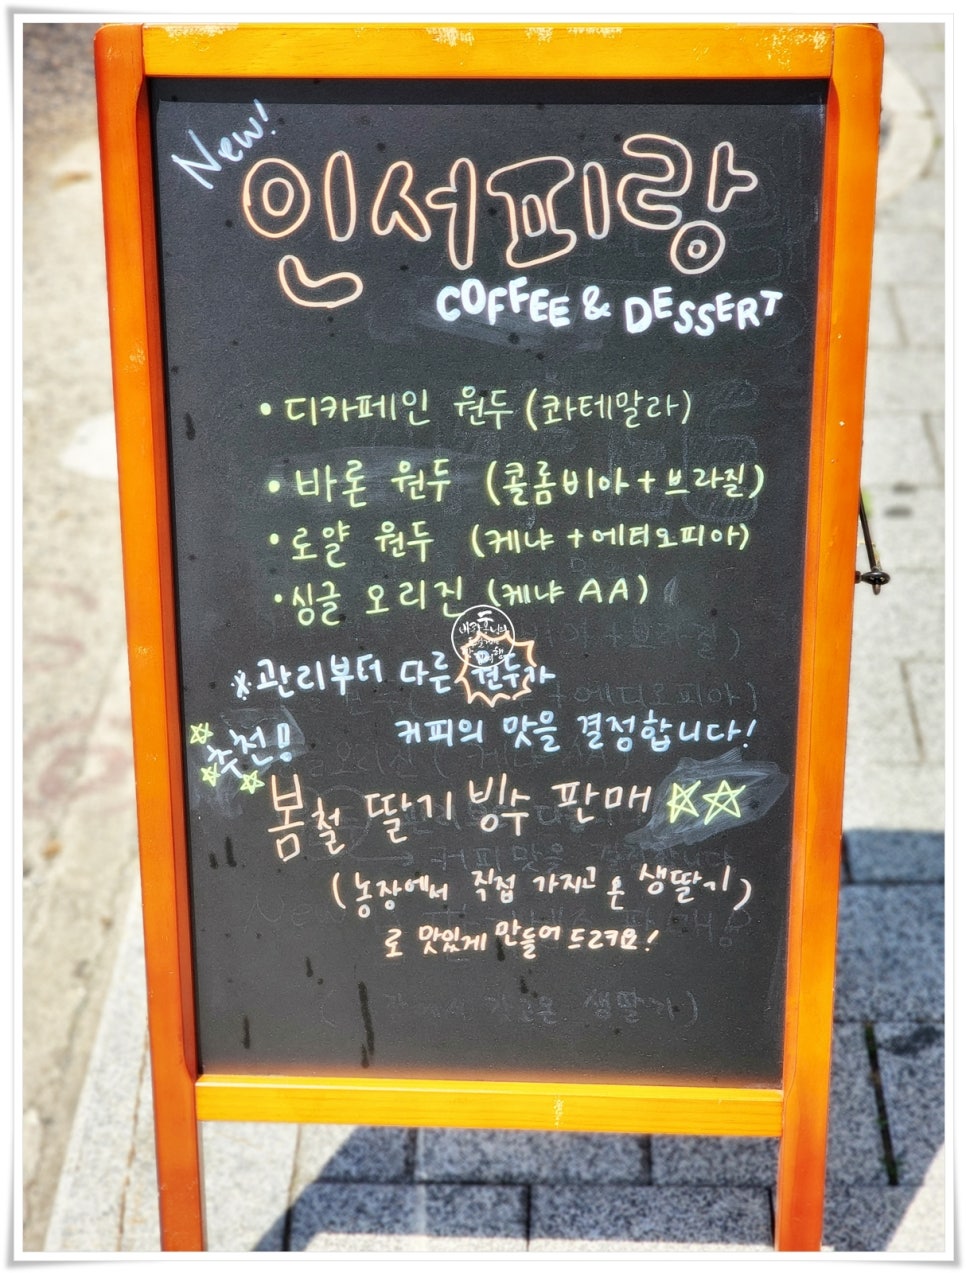 New!
인서피랑
COFFEE & DESSERT
• 디카페인 원두 (콰테말라)
• 바론 원두 (콜롬비아 + 브라질)
• 로얄 원두 (케냐 + 에티오피아)
• 싱글 오리진 (케냐 AA)
※ 관리부터 다른 원두가
커피의 맛을 결정합니다!
추천!!
봄철 딸기 빙수 판매 ☆☆
(농장에서 직접 가지고 온 생딸기)
로 맛있게 만들어 드려요!